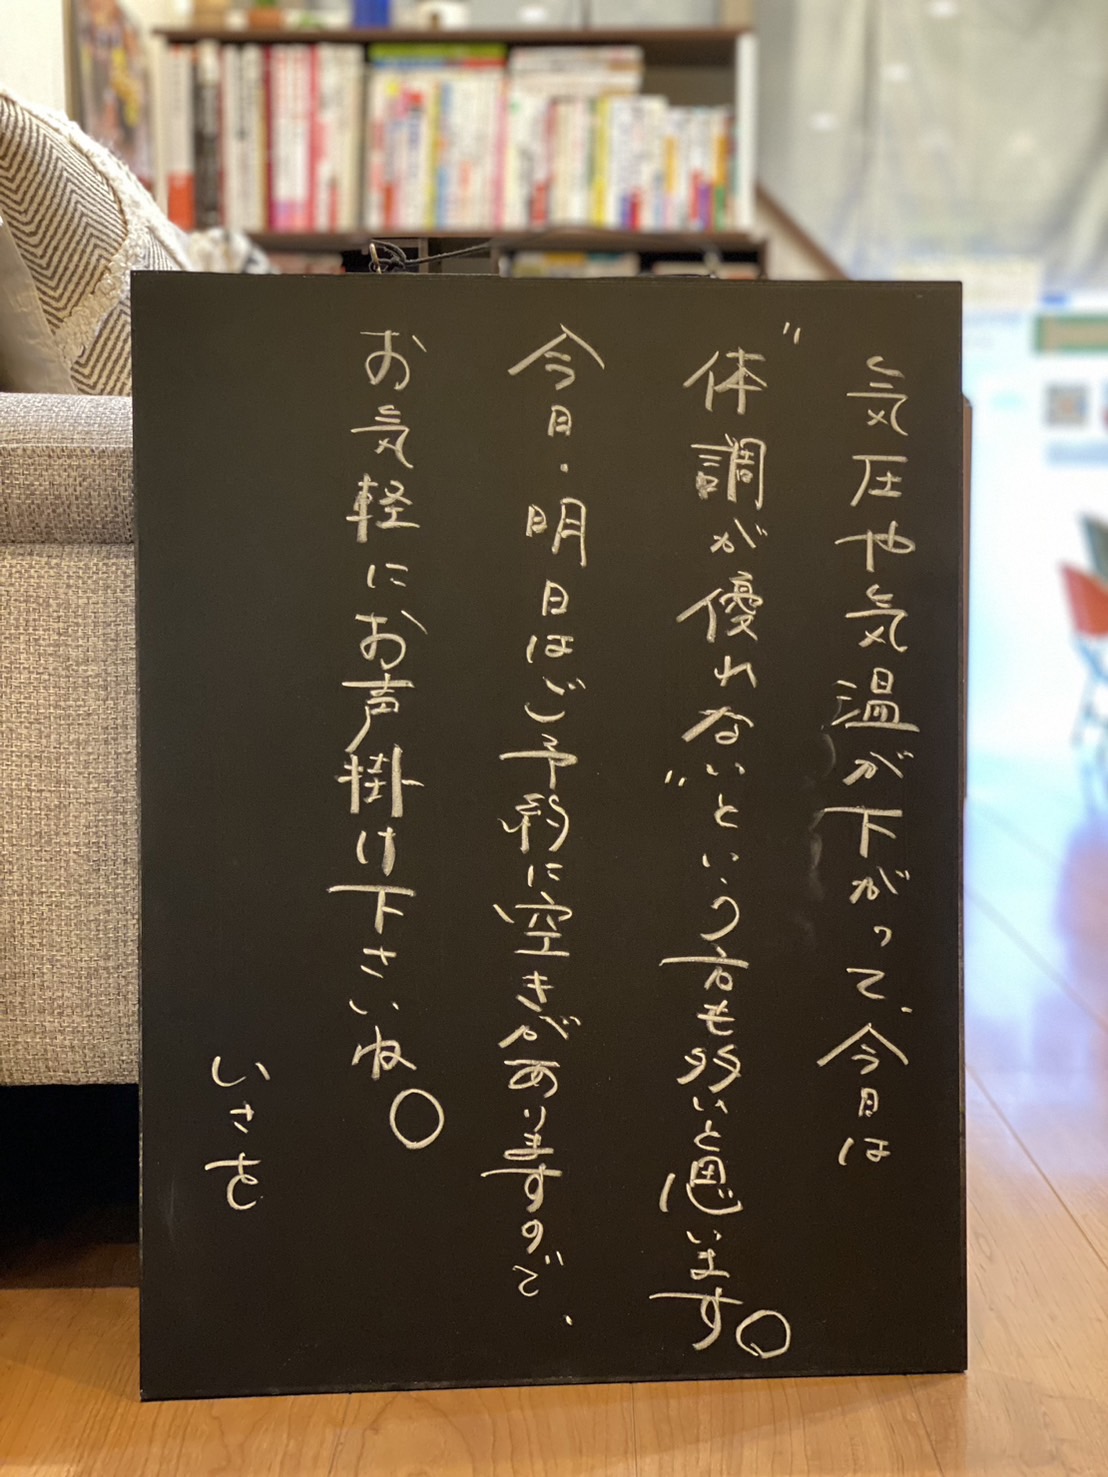 気圧や気温が下がって、今日は
"体調が優れない"という方も多いと思います。
今日・明日はご予約に空きがありますので、
お気軽にお声掛け下さいね。
いさを